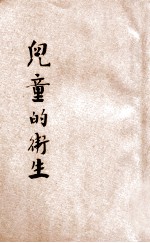 兒童的衛生